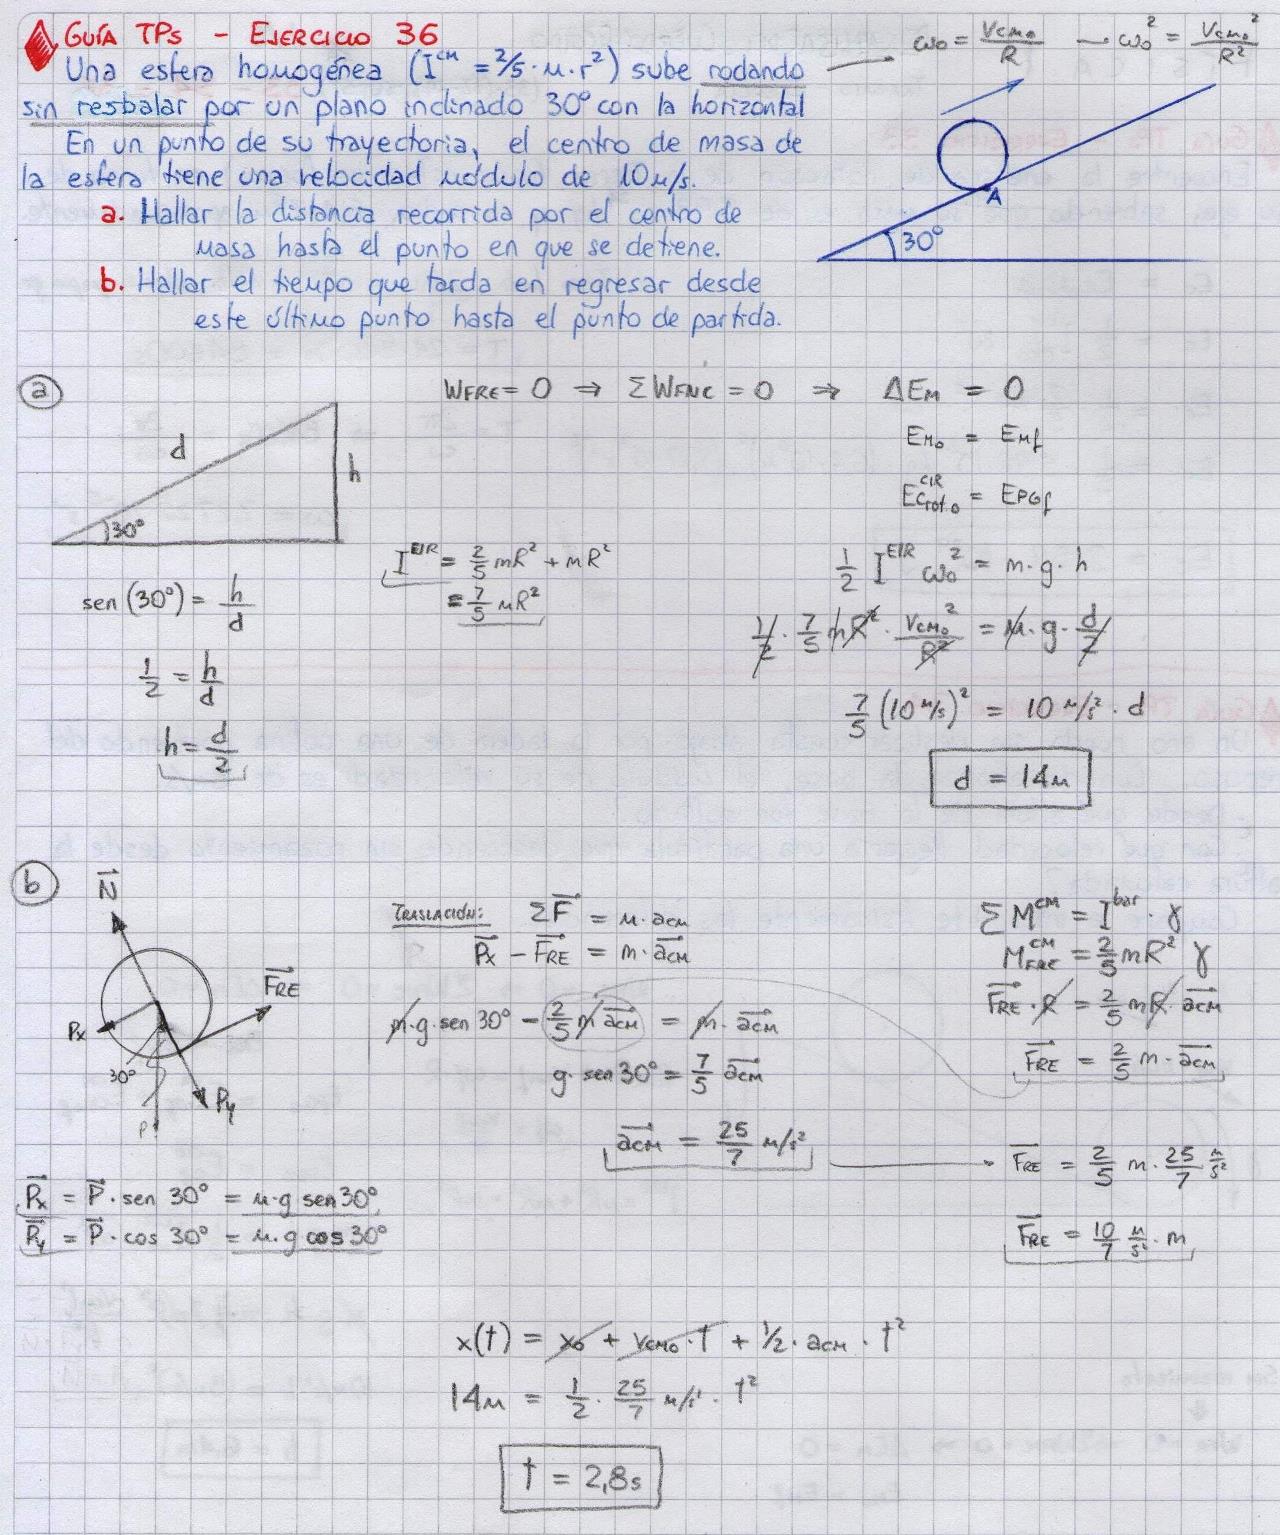 GUÍA TPs - EJERCICIO 36
Una esfera homogénea (I^CM = 2/5 · m · r²) sube rodando
sin resbalar por un plano inclinado 30° con la horizontal
En un punto de su trayectoria, el centro de masa de
la esfera tiene una velocidad módulo de 10 m/s.
a. Hallar la distancia recorrida por el centro de
masa hasta el punto en que se detiene.
b. Hallar el tiempo que tarda en regresar desde
este último punto hasta el punto de partida.
ω₀ = Vcm₀/R → ω₀² = Vcm₀²/R²
A
30°
a
d
h
30°
sen(30°) = h/d
1/2 = h/d
h = d/2
W FRE = 0 ⇒ ΣW FNC = 0 ⇒ ΔEM = 0
EM₀ = EMf
Ec rot.0 ^CIR = EPGf
I^EIR = 2/5 mR² + mR²
= 7/5 mR²
1/2 I^EIR ω₀² = m·g·h
1/2 · 7/5 mR² · Vcm₀²/R² = m·g·d/2
7/5 (10 m/s)² = 10 m/s² · d
d = 14m
b
N
FRE
Px
30°
Py
P
Px = P · sen 30° = m·g sen30°
Py = P · cos 30° = m·g cos30°
TRASLACIÓN: ΣF = m·acm
Px - FRE = m·acm
m·g·sen 30° - 2/5 m acm = m·acm
g·sen30° = 7/5 acm
acm = 25/7 m/s²
ΣM^CM = I^bar · γ
M FRE ^CM = 2/5 mR² γ
FRE · R = 2/5 mR · acm
FRE = 2/5 m·acm
FRE = 2/5 m · 25/7 m/s²
FRE = 10/7 m/s² · m
x(t) = x₀ + Vcm₀·t + 1/2 · acm · t²
14m = 1/2 · 25/7 m/s² · t²
t = 2,8s